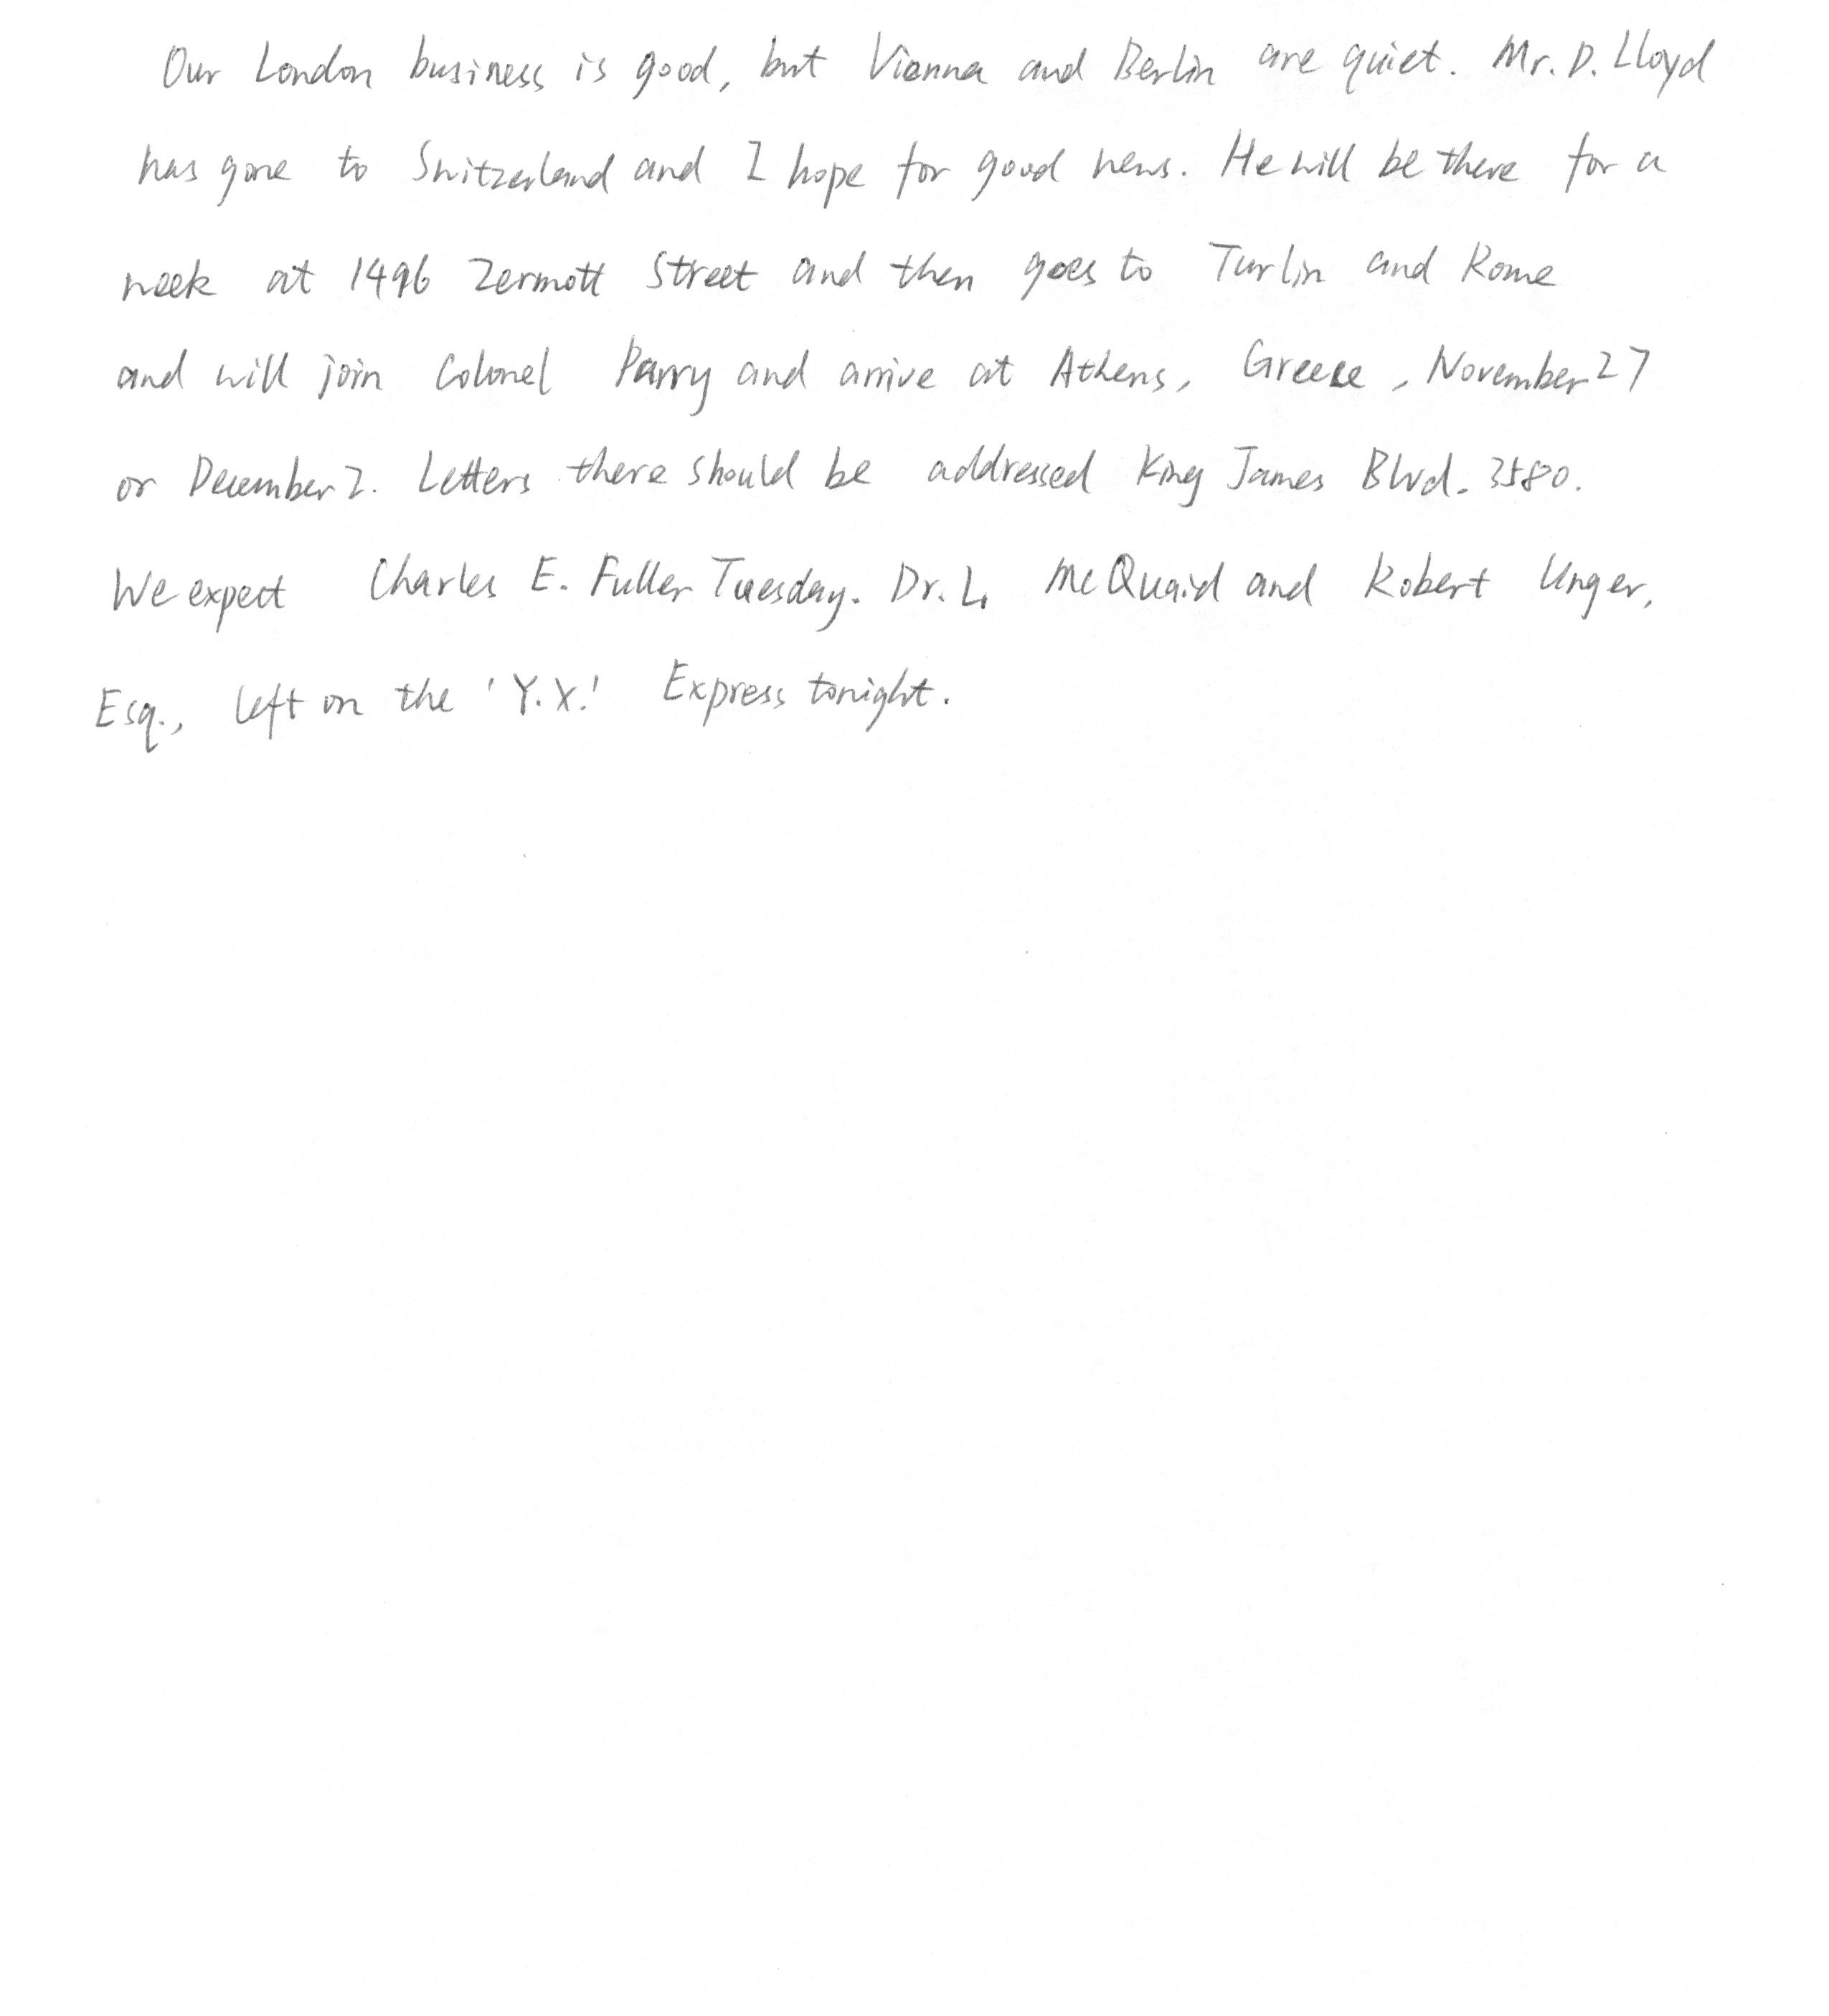 Our London business is good, but Vienna and Berlin are quiet. Mr. D. Lloyd
has gone to Switzerland and I hope for good news. He will be there for a
week at 1496 Zermott Street and then goes to Turlin and Rome
and will join Colonel Parry and arrive at Athens, Greece, November 27
or December 2. Letters there should be addressed King James Blvd. 3580.
We expect Charles E. Fuller Tuesday. Dr. L. McQuaid and Robert Unger,
Esq., left on the 'Y.X.' Express tonight.